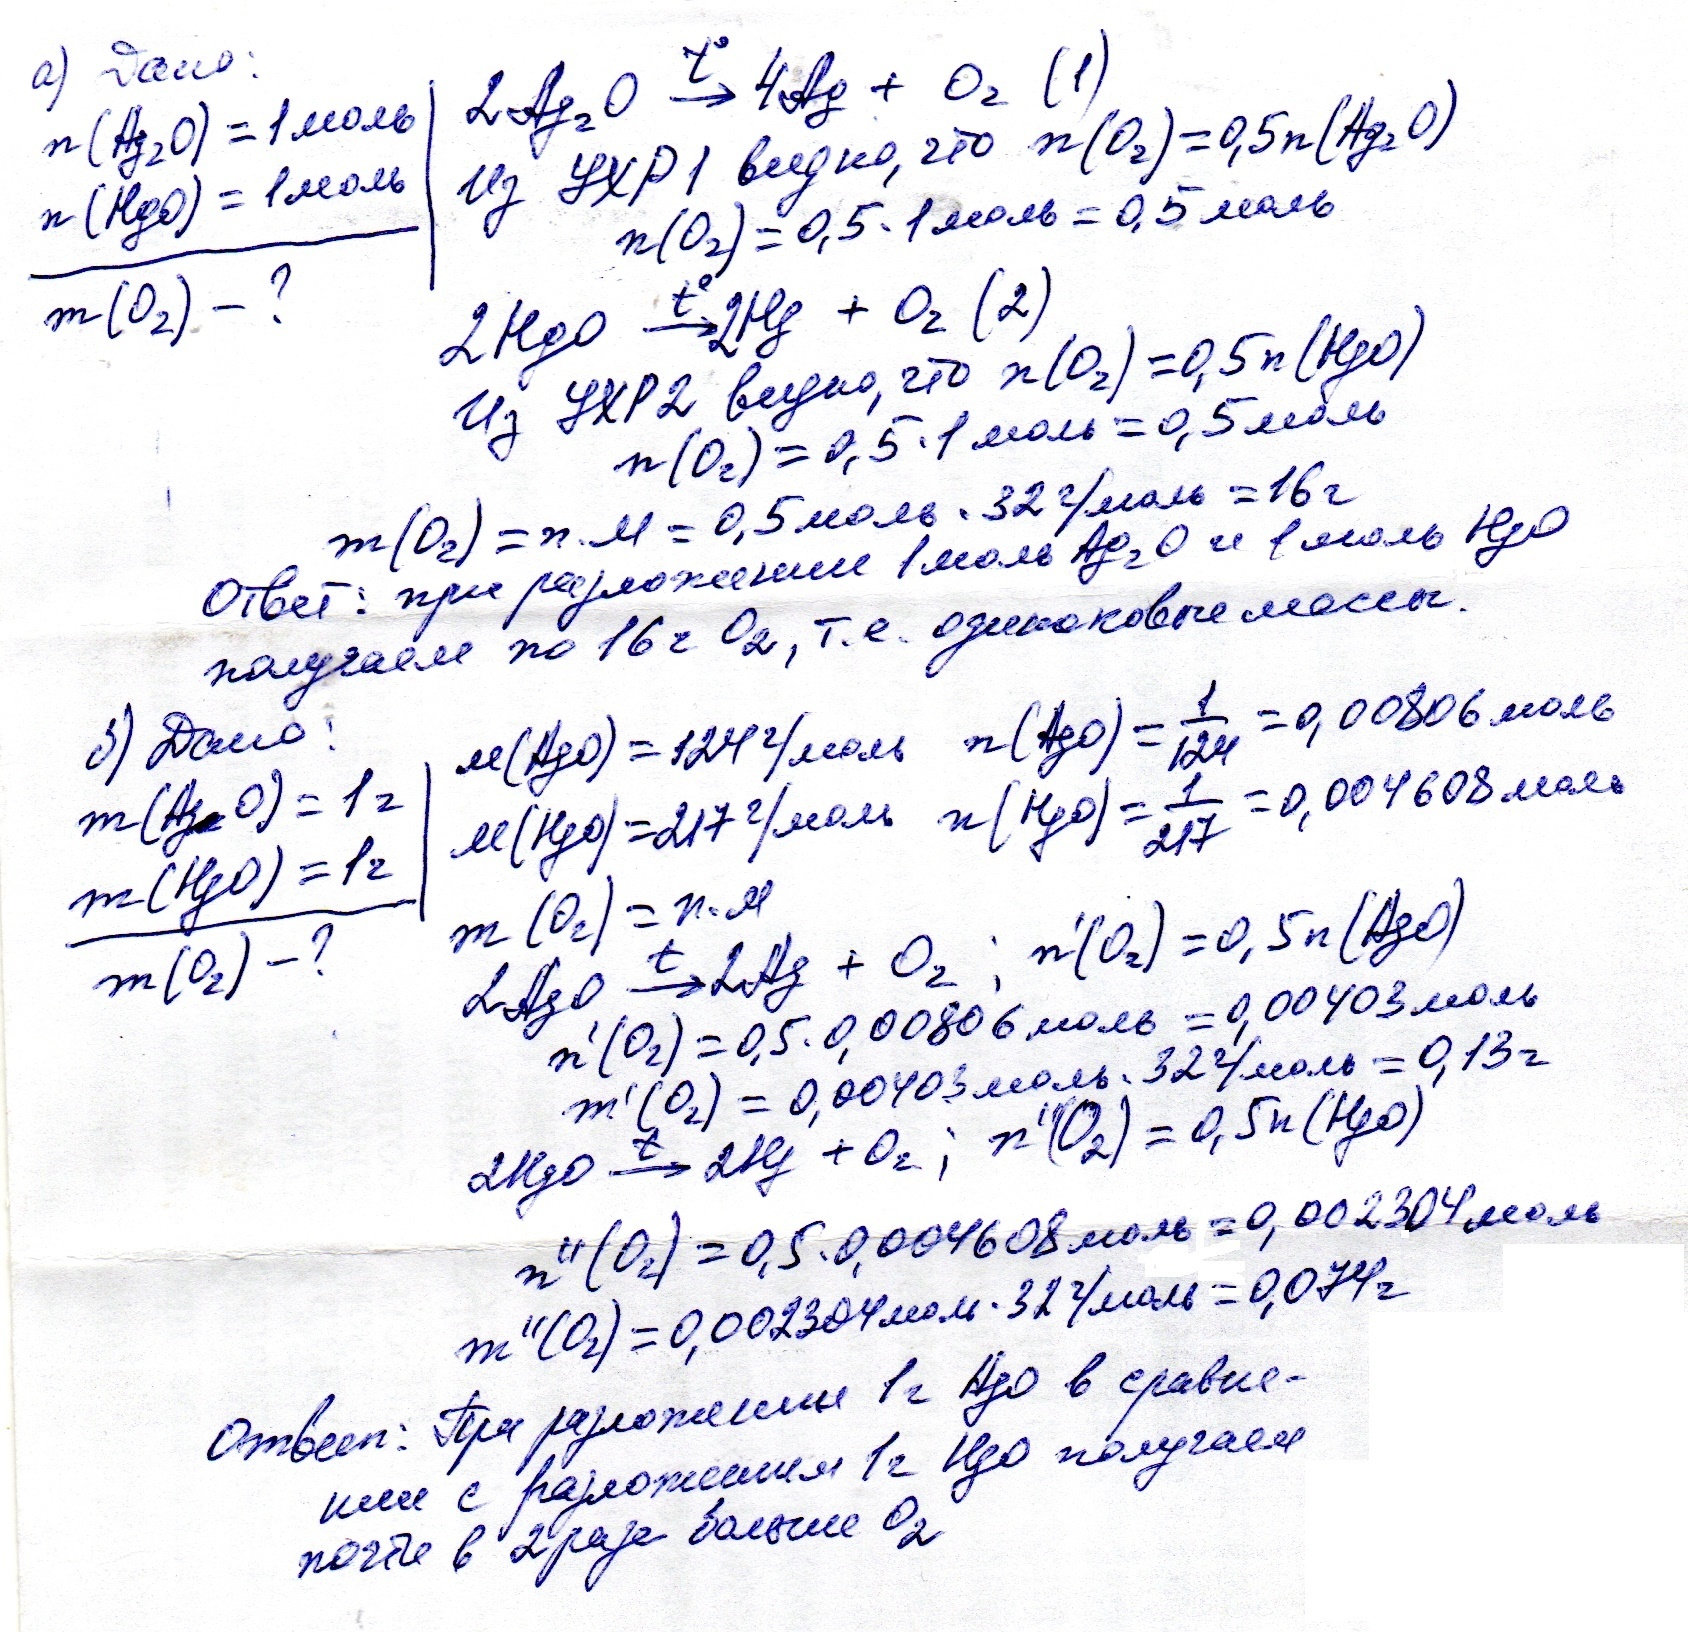 а) Дано:
n(Ag₂O) = 1 моль
n(HgO) = 1 моль
m(O₂) – ?
2Ag₂O →t° 4Ag + O₂ (1)
Из УХР1 видно, что n(O₂) = 0,5n(Ag₂O)
n(O₂) = 0,5 · 1 моль = 0,5 моль
2HgO →t° 2Hg + O₂ (2)
Из УХР2 видно, что n(O₂) = 0,5n(HgO)
n(O₂) = 0,5 · 1 моль = 0,5 моль
m(O₂) = n · M = 0,5 моль · 32 г/моль = 16 г
Ответ: при разложении 1 моль Ag₂O и 1 моль HgO
получаем по 16 г O₂, т.е. одинаковые массы.
б) Дано:
m(AgO) = 1 г
m(HgO) = 1 г
m(O₂) – ?
M(AgO) = 124 г/моль n(AgO) = 1/124 = 0,00806 моль
M(HgO) = 217 г/моль n(HgO) = 1/217 = 0,004608 моль
m(O₂) = n · M
2AgO →t 2Ag + O₂ ; n'(O₂) = 0,5n(AgO)
n'(O₂) = 0,5 · 0,00806 моль = 0,00403 моль
m'(O₂) = 0,00403 моль · 32 г/моль = 0,13 г
2HgO →t 2Hg + O₂ ; n"(O₂) = 0,5n(HgO)
n"(O₂) = 0,5 · 0,004608 моль = 0,002304 моль
m"(O₂) = 0,002304 моль · 32 г/моль = 0,074 г
Ответ: При разложении 1 г AgO в сравне-
нии с разложением 1 г HgO получаем
почти в 2 раза больше O₂